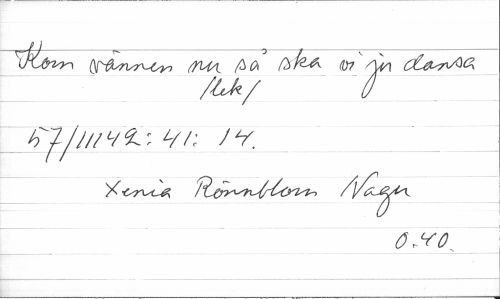 Kom vännen nu så ska vi ju dansa
/lek/
57/11142:41:14.
Xenia Rönnblom Nagu
0.40.